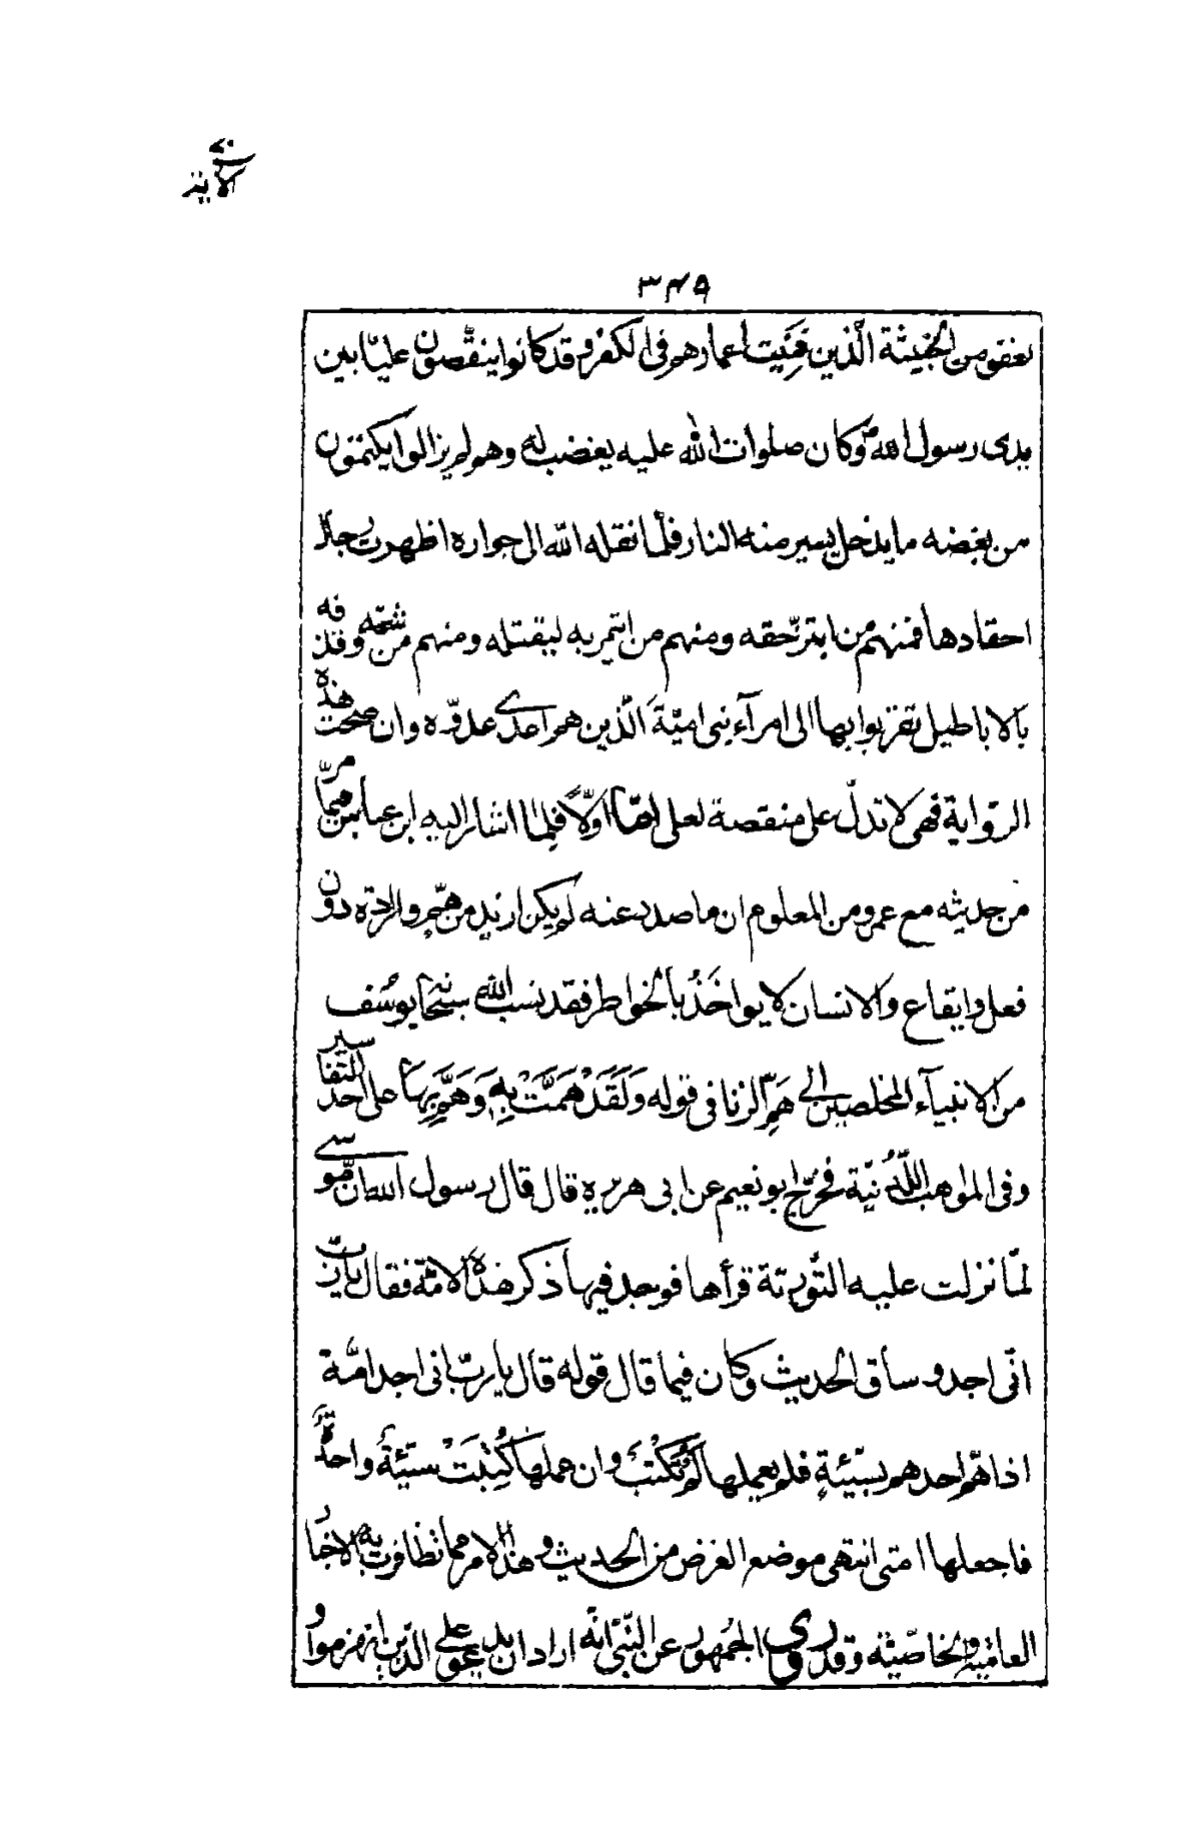 الآية
٣٤٩
من الخبيثة الذين فَنِيَت اعمارهم فى الكفر وقد كانوا ينقّصون عليّا بين
يدى رسول الله ص وكان صلوات الله عليه يغضب له وهم لم يزالوا يكتمون
من بغضه ما يدخل يسير منه النار فلمّا نقله الله الى جواره اظهرت رجال
احقادها فمنهم من ابتزّ حقه ومنهم من ائتمر به ليقتله ومنهم من شتمه وقذفه
بالاباطيل تقربوا بها الى امرآء بنى اميّة الّذين هم اعدى عدوّه وان صحت هذه
الرّواية فهى لا تدلّ على منقصة لعلى امّا اوّلاً فلما اشار اليه ابن عباس فيما مرّ
من حديثه مع عمر ومن المعلوم ان ما صدر عنه لم يكن ازيد من همّ والرادة دون
فعل وايقاع والانسان لا يواخَذُ بالخواطر فقد نسب الله سبحانه يوسُف
من الانبيآء المخلصين الى همّ الزنا فى قوله وَلَقَدْ هَمَّتْ بِهِ وَهَمَّ بِهَا على احد التفاسير
وفى المواهب اللّدُنيّة فخرّج ابو نعيم عن ابى هريرة قال قال رسول الله ان موسى
لمّا نزلت عليه التّورية قرأها فوجد فيها ذكر هذه الامّة فقال يا ربّ
انّى اجد وساق الحديث وكان فيما قال قوله قال يا ربّ انى اجد امّة
اذا همّ احدهم بسيّئةٍ فلم يعملها لم تُكْتَبْ وان عملها كُتِبَتْ سيّئةً واحدةً
فاجعلها امتى انتهى موضع الغرض من الحديث وهذا الامر مما تظافرت به الاخبار
العاميّة والخاصّيّة وقد روى الجمهور عن النّبىّ انّه اراد ان يدعو على الذين انهزموا و